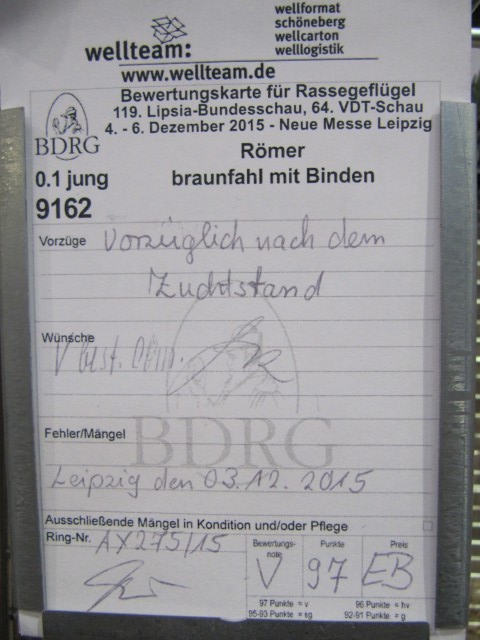 wellformat
schöneberg
wellcarton
welllogistik
wellteam:
www.wellteam.de
Bewertungskarte für Rassegeflügel
119. Lipsia-Bundesschau, 64. VDT-Schau
4. - 6. Dezember 2015 - Neue Messe Leipzig
BDRG
Römer
0.1 jung
braunfahl mit Binden
9162
Vorzüge
Vorzüglich nach dem
Zuchtstand
Wünsche
V best.
Fehler/Mängel
BDRG
Leipzig den 03.12.2015
Ausschließende Mängel in Kondition und/oder Pflege
Ring-Nr. AX275/15
Bewertungs-
note
Punkte
Preis
V 97 EB
97 Punkte = v
96 Punkte = hv
95-93 Punkte = sg
92-91 Punkte = g